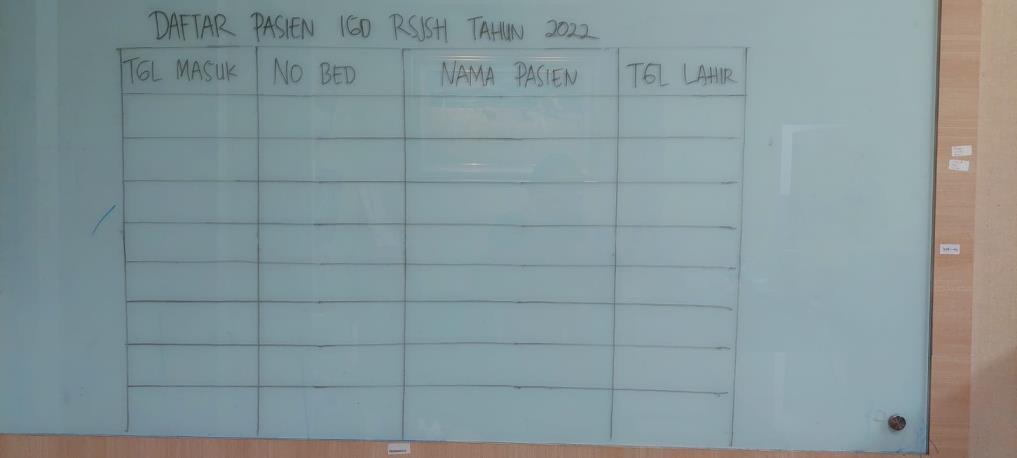 DAFTAR PASIEN IGD RSJSH TAHUN 2022
TGL MASUK NO BED NAMA PASIEN TGL LAHIR